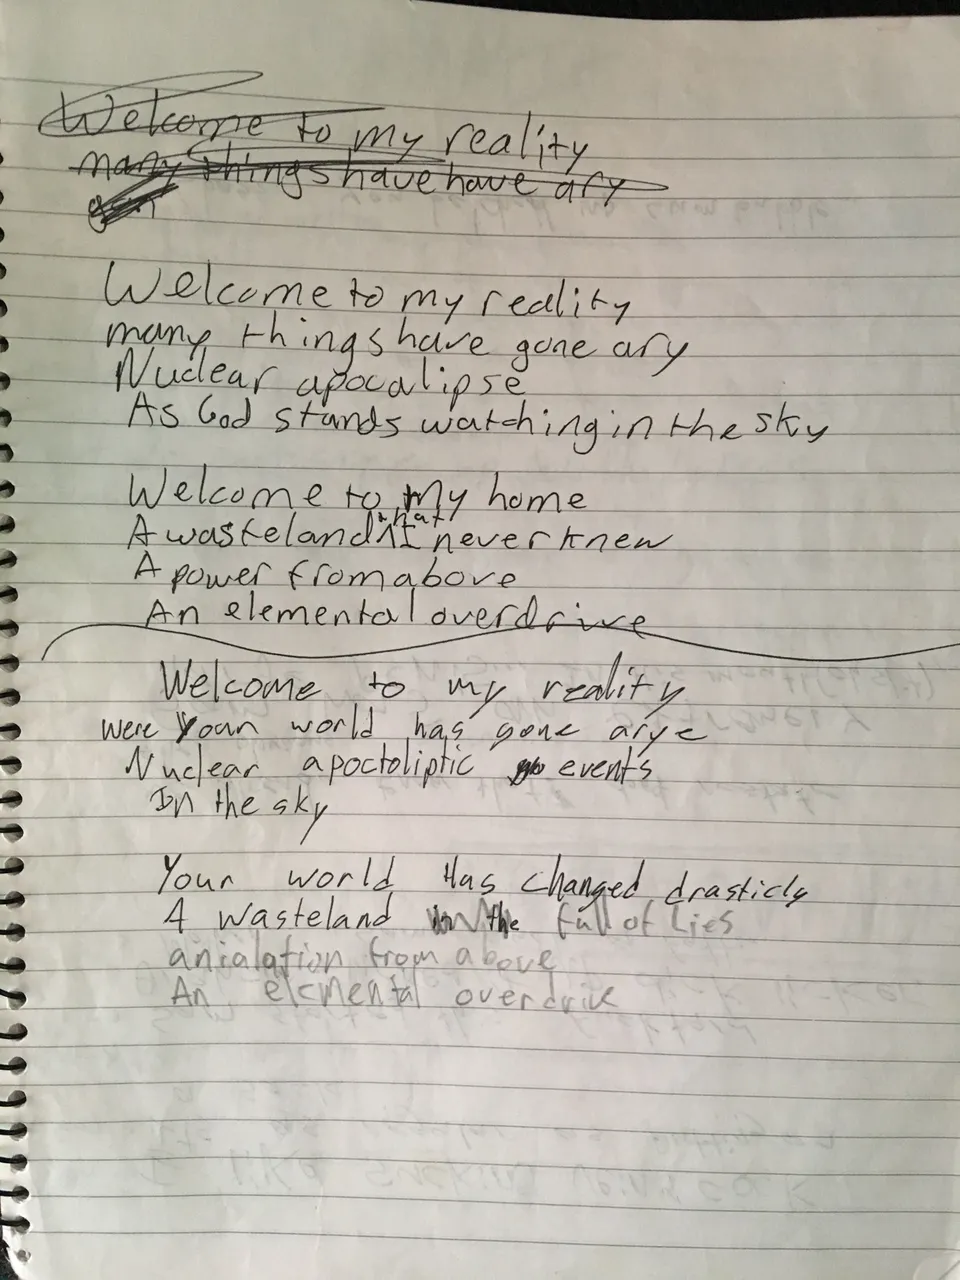 Welcome to my reality
many things have have ary
Welcome to my reality
many things have gone ary
Nuclear apocalipse
As God stands watching in the sky
Welcome to my home
A wasteland that I never knew
A power from above
An elemental overdrive
Welcome to my reality
Were Your world has gone arye
Nuclear apoctoliptic events
In the sky
Your world Has changed drasticly
A wasteland the full of Lies
anialation from above
An elemental overdrive